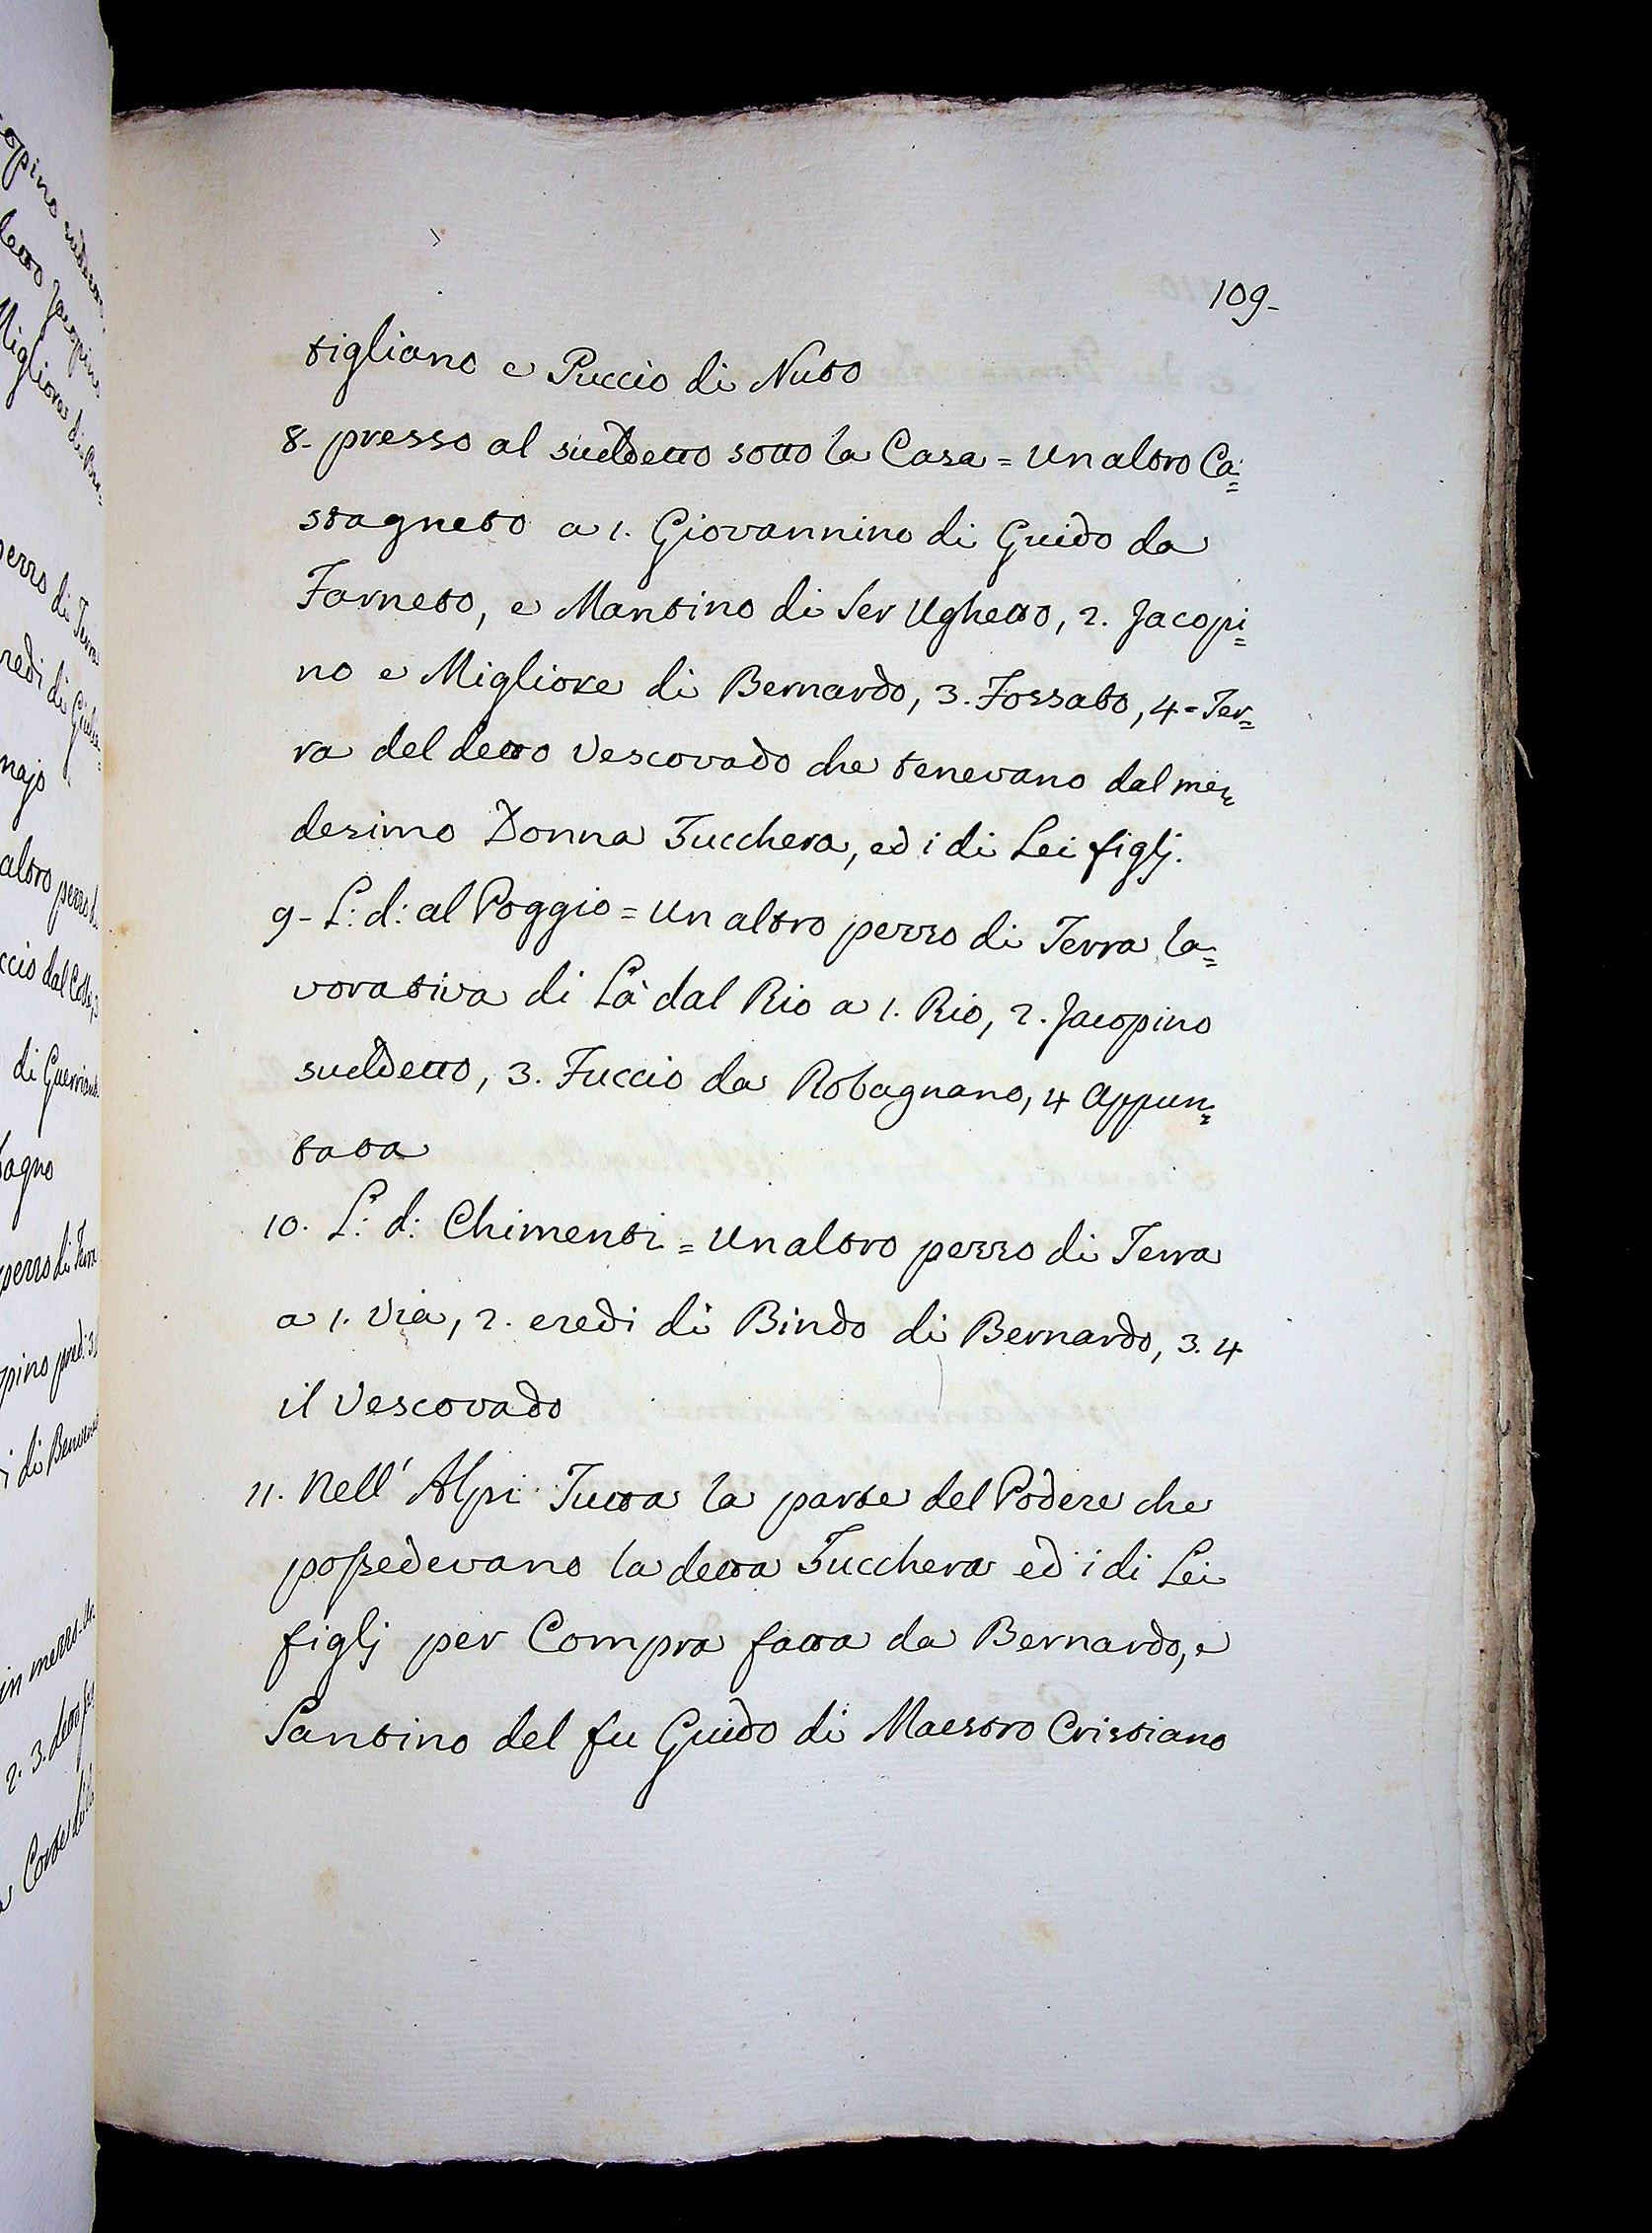 109-
tigliano e Puccio di Nuto
8- presso al suddetto sotto la Casa = un altro Ca=
stagneto a 1. Giovannino di Guido da
Farneto, e Mantino di Ser Ughetto, 2. Jacopi=
no e Migliore di Bernardo, 3. Fossato, 4 = Ter=
ra del detto Vescovado che tenevano dal me=
desimo Donna Zucchera, ed i di Lei figlj.
9- L: d: al Poggio = un altro pezzo di Terra la=
vorativa di Là dal Rio a 1. Rio, 2. Jacopino
suddetto, 3. Fuccio da Robagnano, 4 appun=
tata
10. L: d: Chimenti = un altro pezzo di Terra
a 1. Via, 2. eredi di Bindo di Bernardo, 3. 4
il Vescovado
11. Nell' Alpi Tutta la parte del Podere che
possedevano la detta Zucchera ed i di Lei
figlj per Compra fatta da Bernardo, e
Santino del fu Guido di Maestro Cristiano